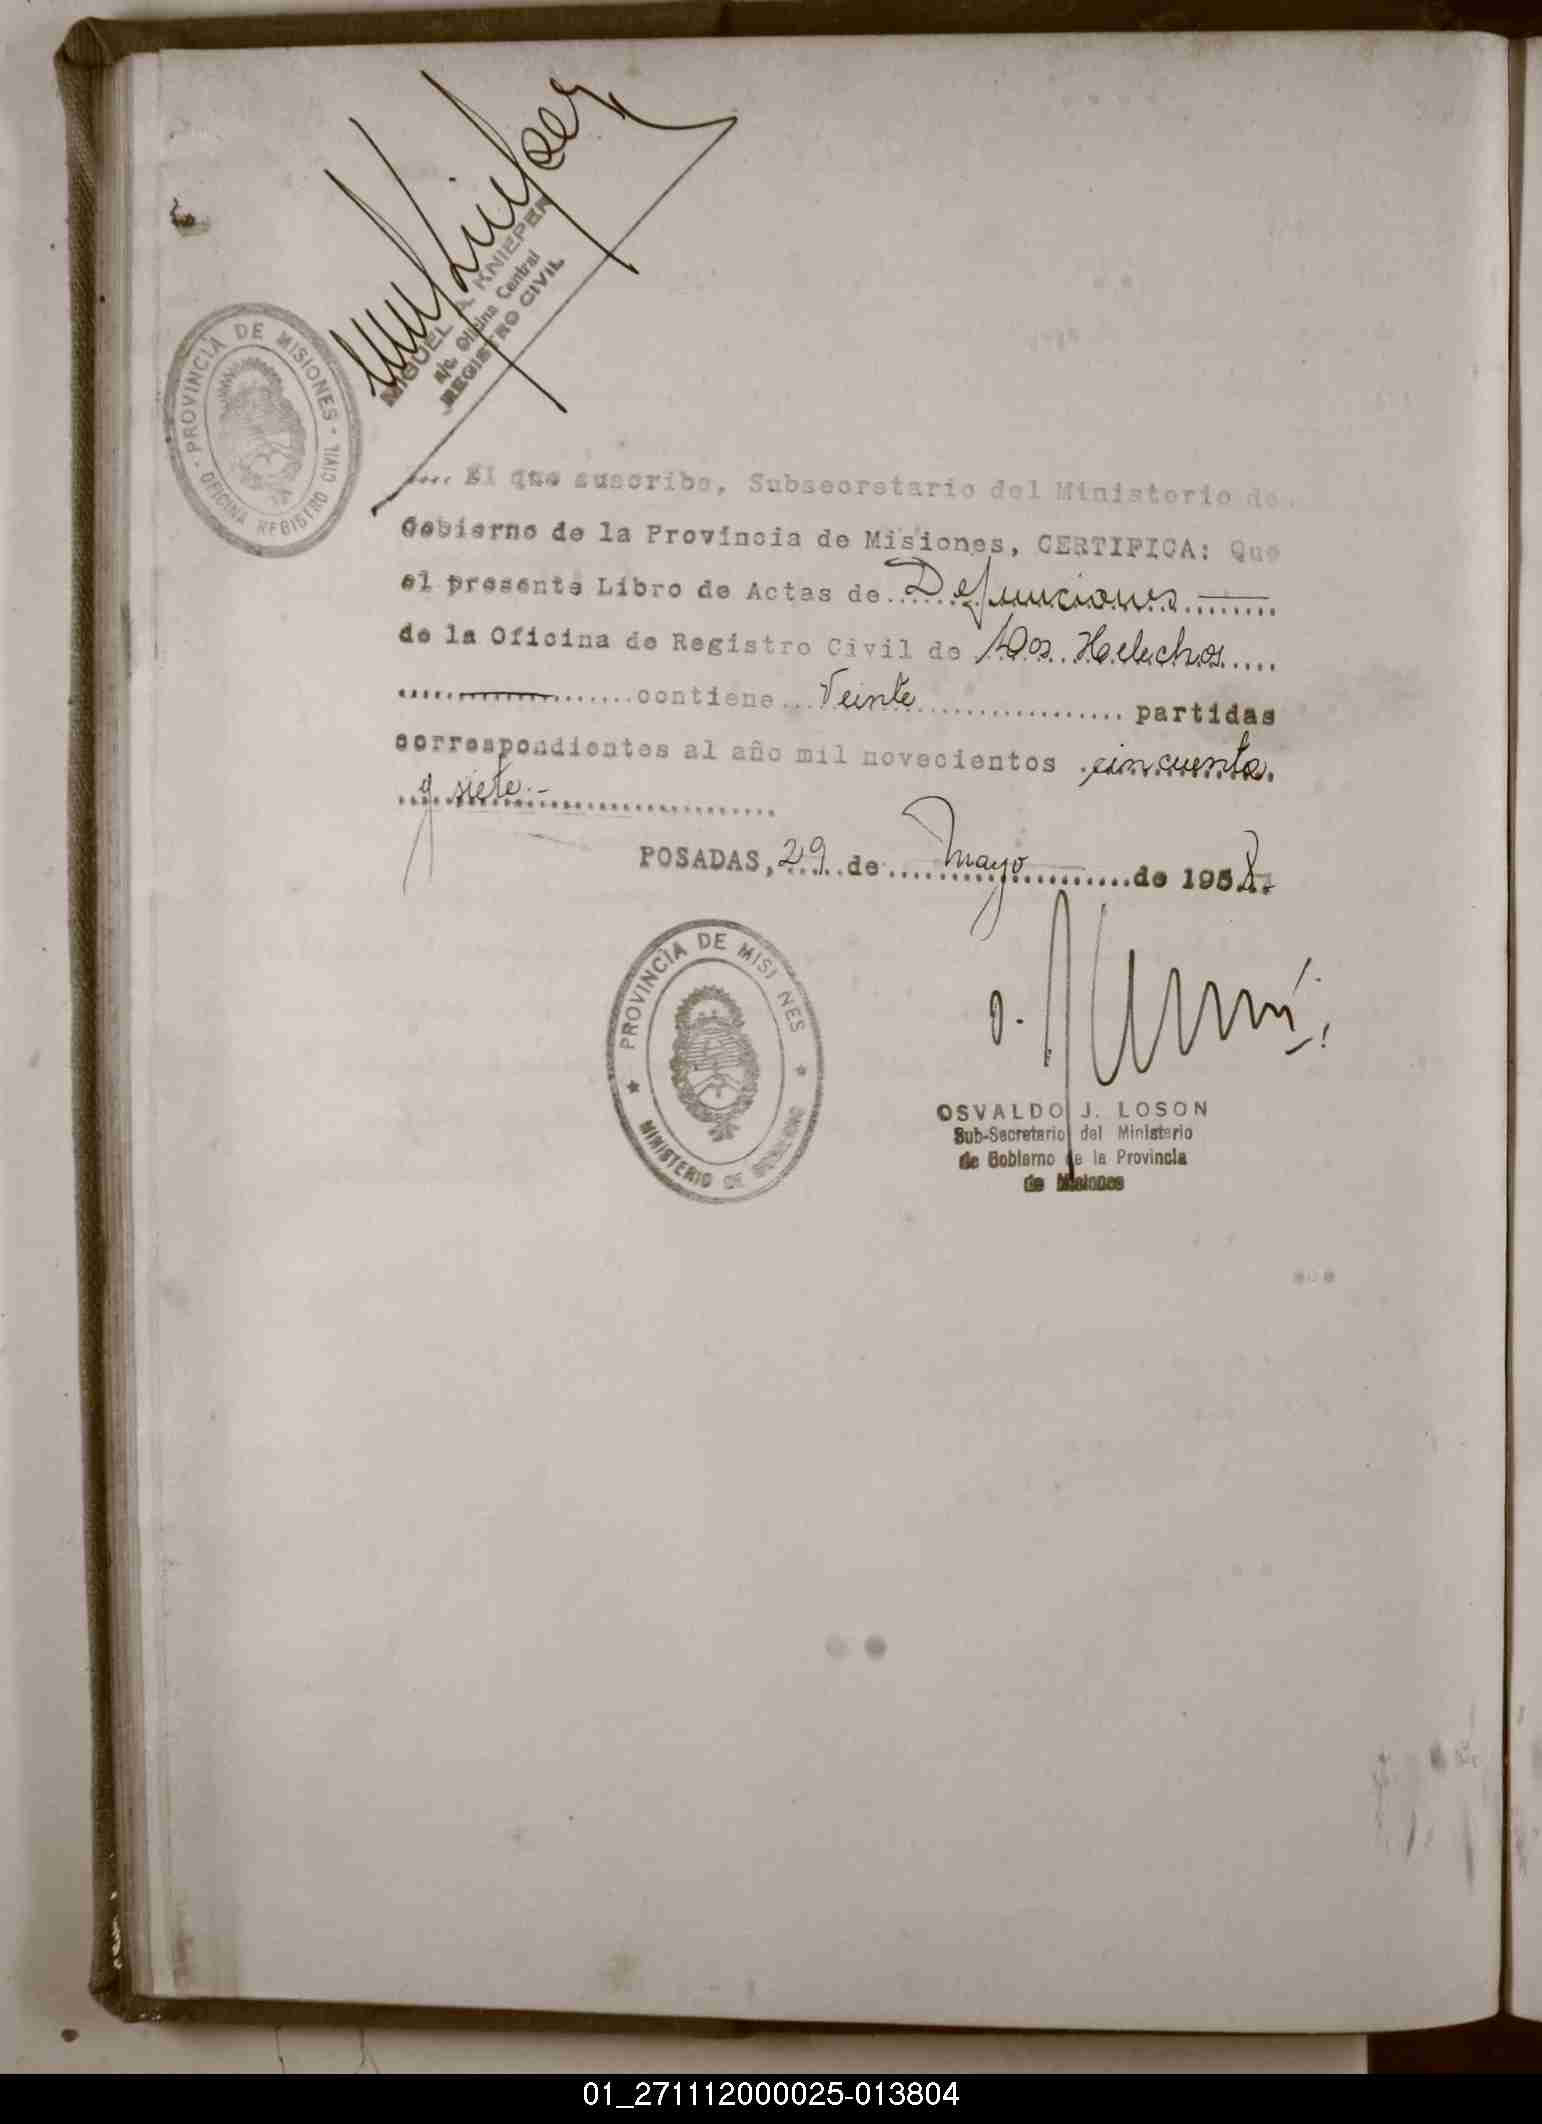 MIGUEL A. KNIEPER
a/c. Oficina Central
REGISTRO CIVIL
PROVINCIA DE MISIONES
OFICINA REGISTRO CIVIL
.... El que suscribe, Subsecretario del Ministerio de.
Gobierno de la Provincia de Misiones, CERTIFICA: Que
el presente Libro de Actas de Defunciones
de la Oficina de Registro Civil de Los Helechos
contiene Veinte partidas
correspondientes al año mil novecientos cincuenta
y siete.-
POSADAS, 29 de mayo de 1958.
PROVINCIA DE MISI NES
MINISTERIO DE GOBIERNO
OSVALDO J. LOSON
Sub-Secretario del Ministerio
de Gobierno de la Provincia
de Misiones
01_271112000025-013804